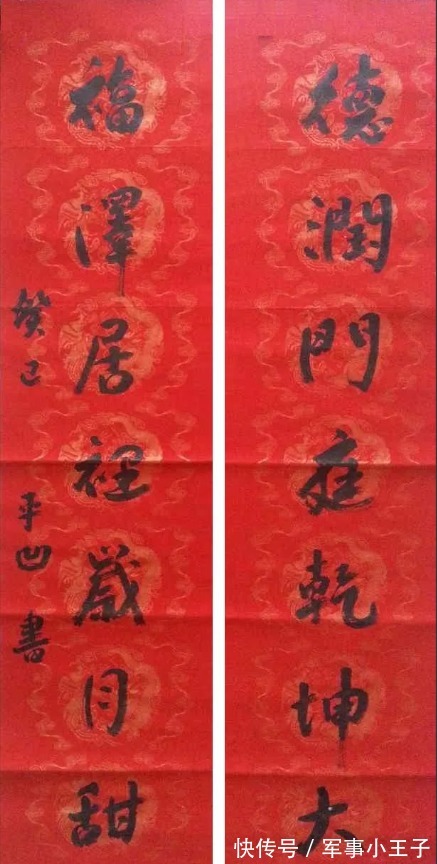 德潤門庭乾坤大
福澤居裡歲月甜
癸巳 平凹 書
快传号 / 军事小王子